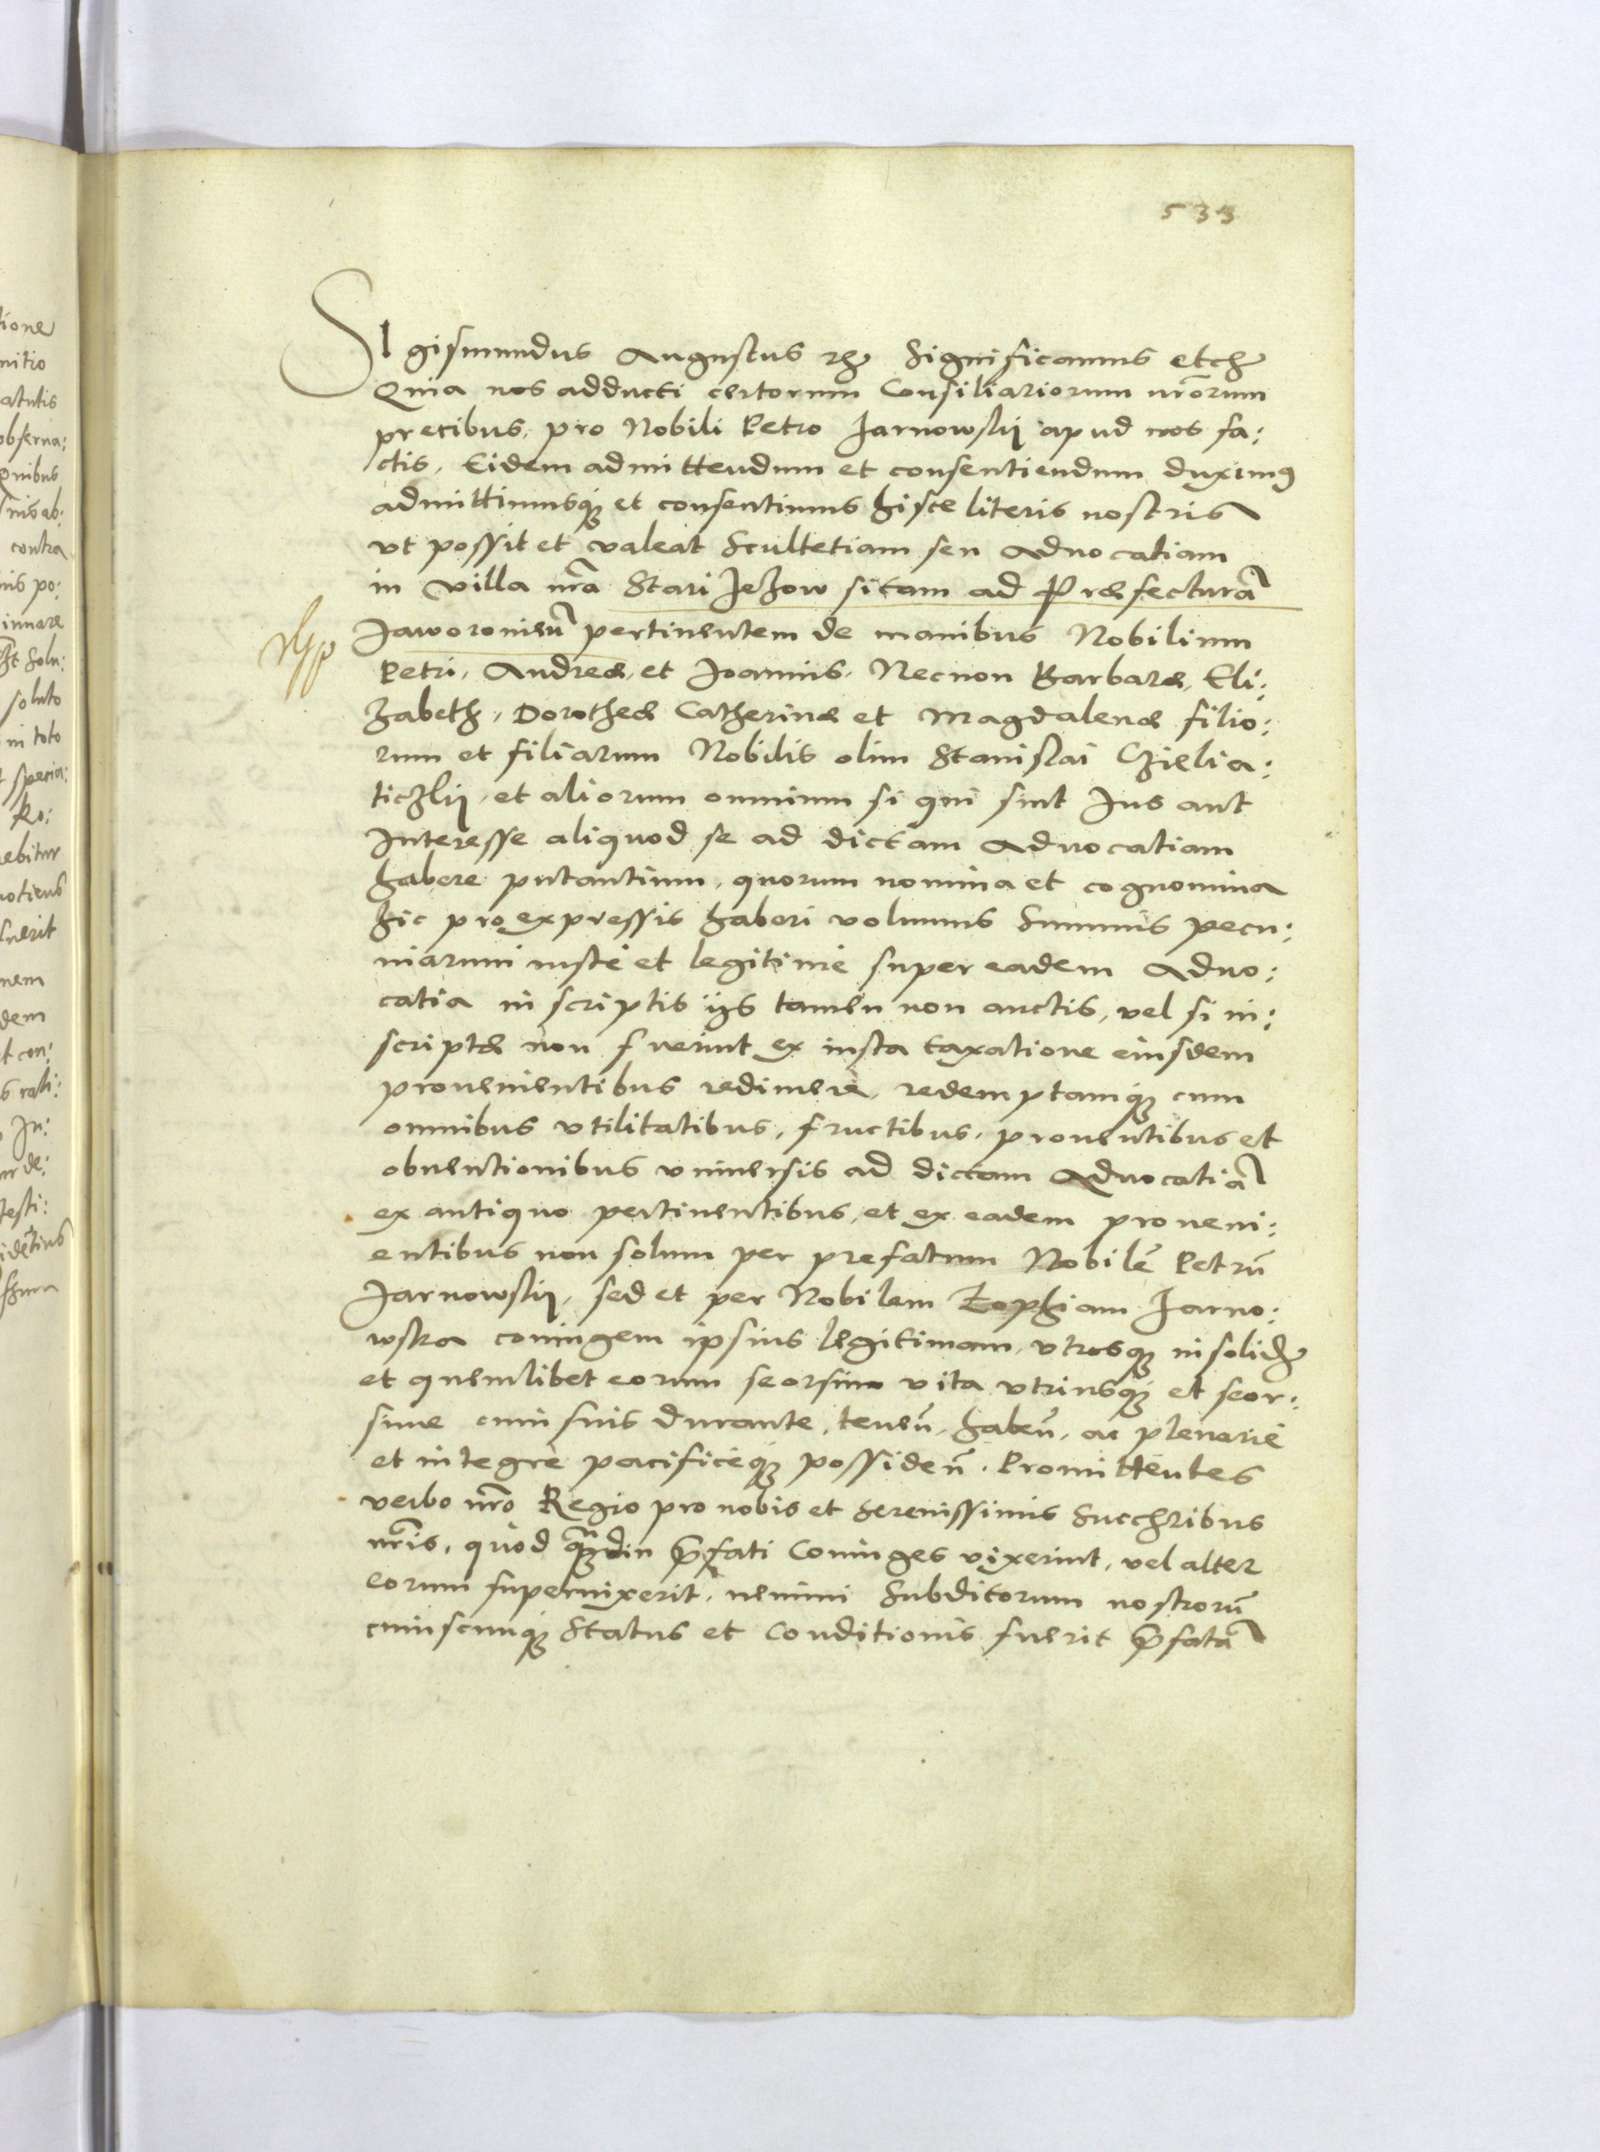 533
SIgismundus Augustus etc Significamus etc
Quia nos adducti certorum Consiliariorum nrorum
precibus, pro Nobili Petro Jarnowskij apud nos fa:
ctis, Eidem admittendum et consentiendum duximus
admittimusq; et consentimus hisce literis nostris
vt possit et valeat Scultetiam seu Aduocatiam
in Villa nra Stari Jezow sitam ad Præfecturã
Jaworonieñ pertinentem de manibus Nobilium
Petri, Andreæ, et Joannis, Necnon Barbaræ, Eli:
zabeth, Dorotheæ Catherinæ et Magdalenæ filio:
rum et filiarum Nobilis olim Stanislai Czielia:
ticzkij, et aliorum omnium si qui sint Jus aut
Interesse aliquod se ad dictam Aduocatiam
habere putantium, quorum nomina et cognomina
hic pro expressis haberi volumus Summis pecu:
niarum iuste et legitime super eadem Aduo:
catia in scriptis ijs tamen non auctis, vel si in:
scriptæ non fuerint ex iusta taxatione eiusdem
prouenientibus redimere, redemptamq; cum
omnibus vtilitatibus, fructibus, prouentibus et
obuentionibus vniuersis ad dictam Aduocatiã
ex antiquo pertinentibus, et ex eadem proueni:
entibus non solum per prefatum Nobilẽ Petrũ
Jarnowskij, sed et per Nobilem Zophiam Jarno:
wska coniugem ipsius legitimam, vtrosq; insolid
et quemlibet eorum seorsim vita vtriusq; et seor:
siue cum suis durante, teneñ, habeñ, ac plenarie
et integre pacificeq; possideñ. Promittentes
verbo nro Regio pro nobis et Serenissimis Succhribus
nris, quod quamdiu p̃fati Coniuges vixerint, vel alter
eorum superuixerit, nemini Subditorum nostrorũ
cuiuscunq; Status et Conditionis fuerit p̃fatã